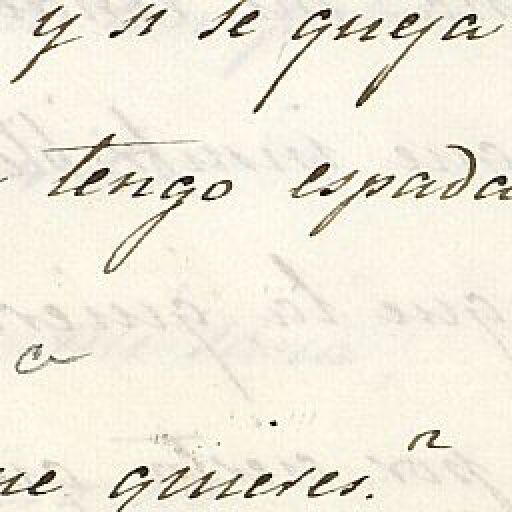 y si se queja
tengo espada
a
ue quieres.